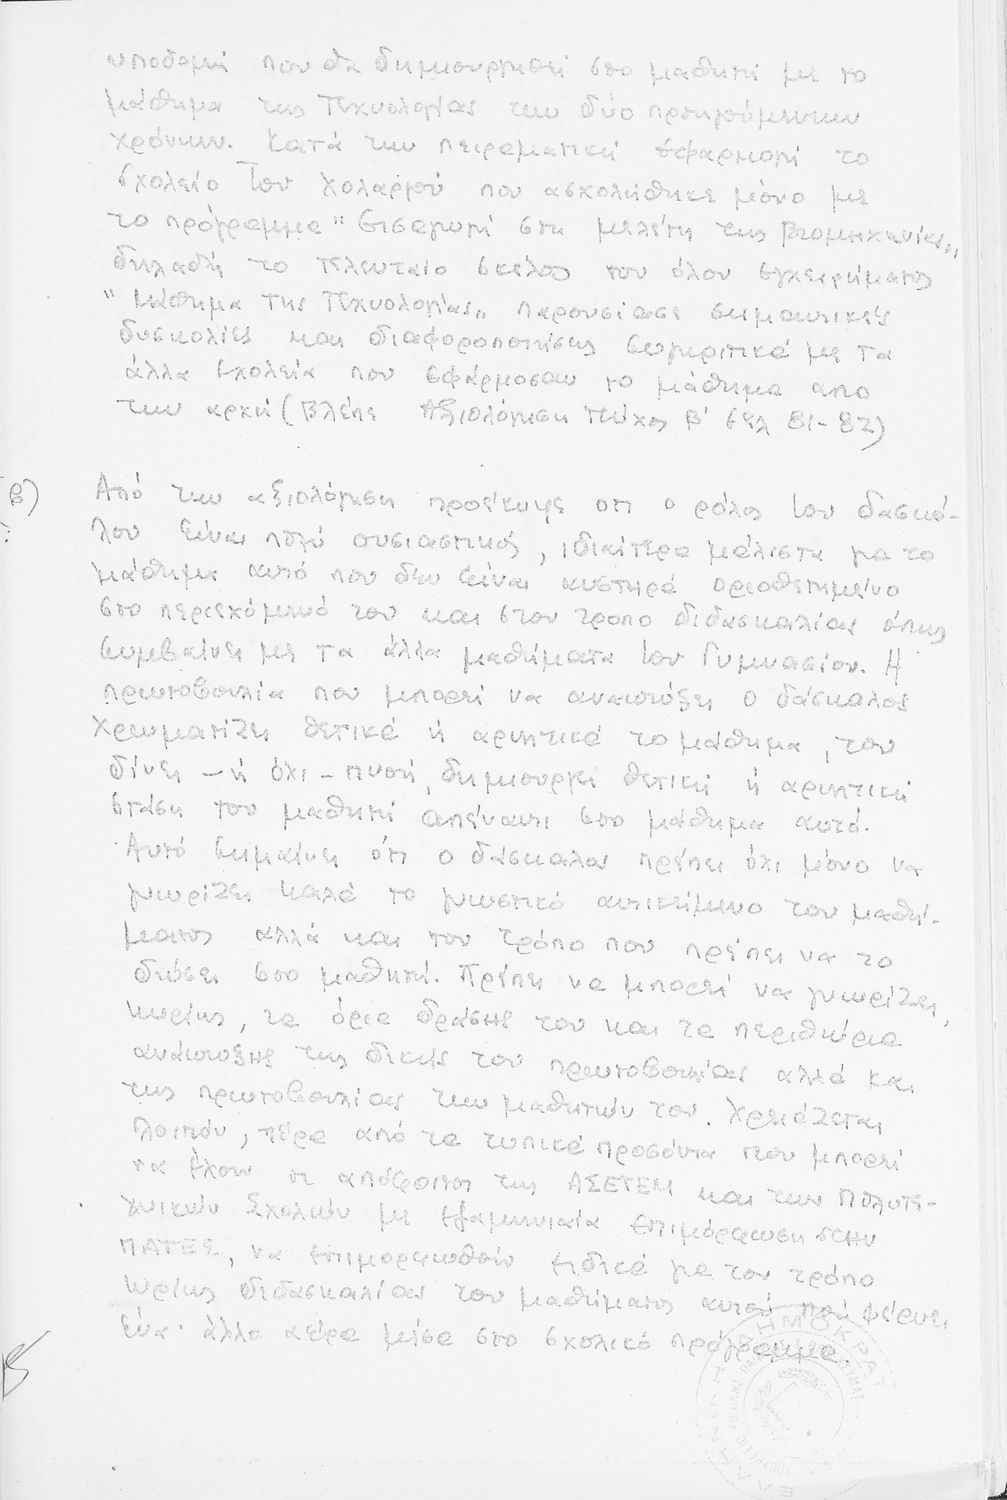 υποδομή που θα δημιουργηθεί στο μαθητή με το
μάθημα της Τεχνολογίας των δύο προηγούμενων
χρόνων. Κατά την πειραματική εφαρμογή το
Σχολείο του Χολαργού που ασχολήθηκε μόνο με
το πρόγραμμα "Εισαγωγή στη μελέτη της Βιομηχανίας"
δηλαδή το τελευταίο σκέλος του όλου εγχειρήματος
"Μάθημα της Τεχνολογίας" παρουσίασε σημαντικές
δυσκολίες και διαφοροποιήσεις συγκριτικά με τα
άλλα σχολεία που εφάρμοσαν το μάθημα απο
την αρχή (Βλέπε Αξιολόγηση τεύχος Β' σελ 81-82)
β) Από την αξιολόγηση προέκυψε οτι ο ρόλος του δασκά-
λου είναι πολύ ουσιαστικός, ιδιαίτερα μάλιστα για το
μάθημα αυτό που δεν είναι αυστηρά οριοθετημένο
στο περιεχόμενό του και στον τροπο διδασκαλίας όπως
συμβαίνει με τα άλλα μαθήματα του Γυμνασίου. Η
πρωτοβουλία που μπορεί να αναπτύξει ο δάσκαλος
χρωματίζει θετικά ή αρνητικά το μάθημα, του
δίνει - ή όχι - πνοή, δημιουργεί θετική ή αρνητική
στάση του μαθητή απέναντι στο μάθημα αυτό.
Αυτό σημαίνει ότι ο δάσκαλος πρέπει όχι μόνο να
γνωρίζει καλά το γνωστικό αντικείμενο του μαθή-
ματος αλλά και τον τρόπο που πρέπει να το
δώσει στο μαθητή. Πρέπει να μπορεί να γνωρίζει,
κυρίως, τα όρια δράσης του και τα περιθώρια
ανάπτυξης της δικής του πρωτοβουλίας αλλά και
της πρωτοβουλίας των μαθητών του. Χρειάζεται
λοιπόν, πέρα από τα τυπικά προσόντα που μπορεί
να έχουν οι απόφοιτοι της ΑΣΕΤΕΜ και των Πολυτε-
χνικών Σχολών με εξαμηνιαία επιμόρφωση στην
ΠΑΤΕΣ, να επιμορφωθούν ειδικά για τον τρόπο
κυρίως διδασκαλίας του μαθήματος αυτού που φέρνει
ένα άλλο αέρα μέσα στο σχολικό πρόγραμμα.
ΕΛΛΗΝΙΚΗ ΔΗΜΟΚΡΑΤΙΑ